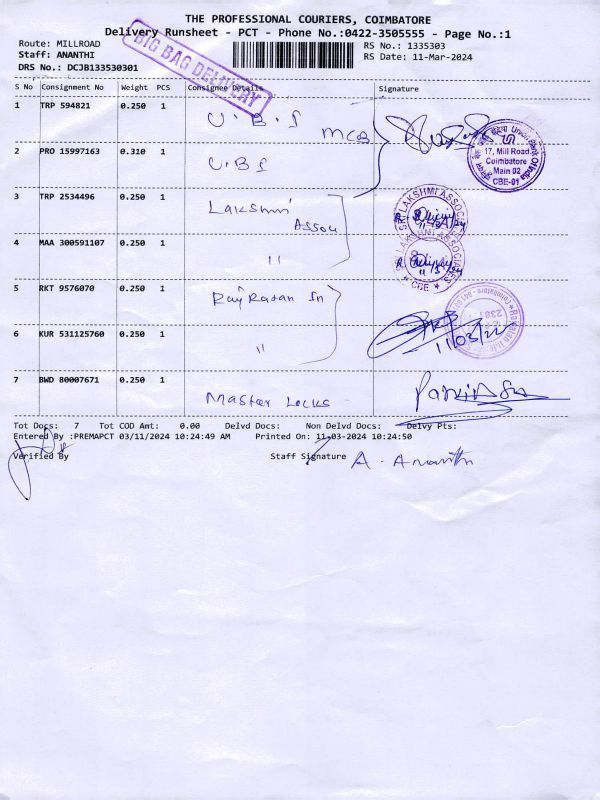 THE PROFESSIONAL COURIERS, COIMBATORE
Delivery Runsheet - PCT - Phone No.:0422-3505555 - Page No.:1
Route: MILLROAD
RS No.: 1335303
Staff: ANANTHI
RS Date: 11-Mar-2024
DRS No.: DCJB133530301
BIG BAG DELIVERY
S No Consignment No Weight PCS Consignee Details Signature
1 TRP 594821 0.250 1 U.B.I
MCB
Union Bank Of India
17, Mill Road,
Coimbatore
Main 02
CBE-01
2 PRO 15997163 0.310 1 UBI
3 TRP 2534496 0.250 1 Lakshmi
Assou
SRI LAKSHMI ASSOCIATES
11/3/24
4 MAA 300591107 0.250 1 "
11/3/24
★ CBE ★
5 RKT 9576070 0.250 1 Raj Ratan In
6 KUR 531125760 0.250 1 "
7 BWD 80007671 0.250 1 Master Locks
Tot Docs: 7 Tot COD Amt: 0.00 Delvd Docs: Non Delvd Docs: Delvy Pts:
Entered By :PREMAPCT 03/11/2024 10:24:49 AM Printed On: 11-03-2024 10:24:50
Verified By Staff Signature A. Ananthi